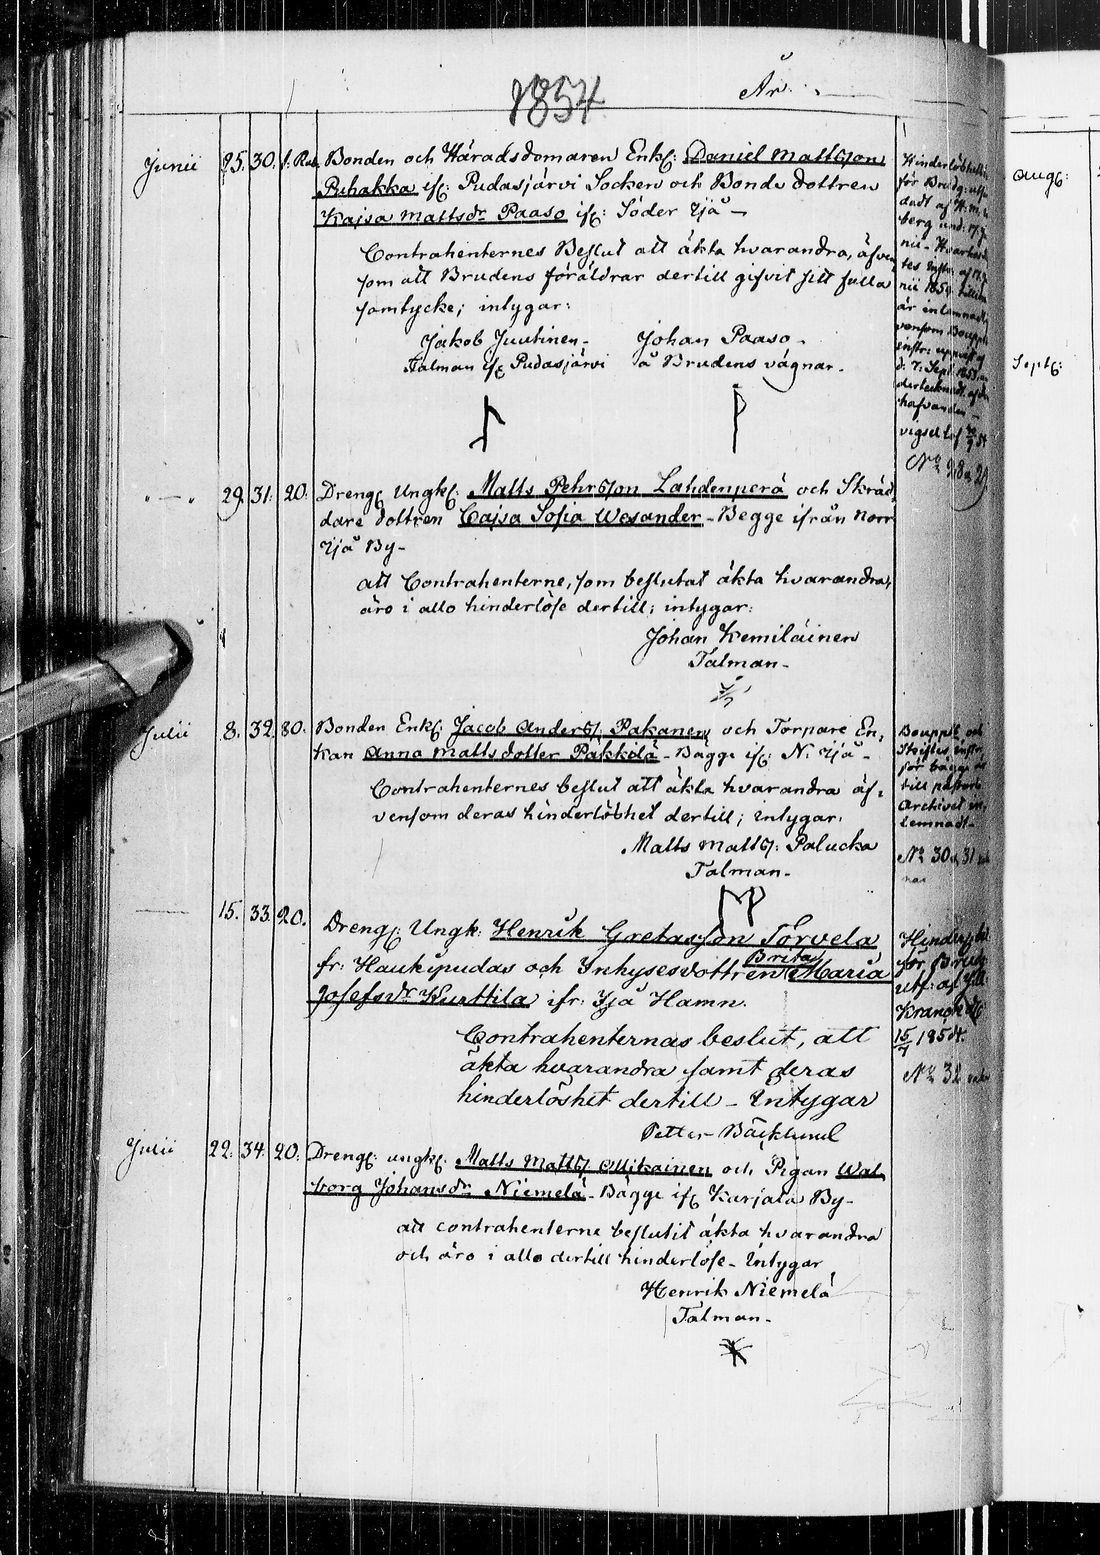 1854 År
Junii 25. 30. 1. Rub. Bonden och Häradsdomaren Enkl: Daniel Mattsson
Puhakka ifr: Pudasjärvi Socken och Bonde dottren
Kajsa Mattsdr Paaso ifr: Söder Ijå –
Contrahenternes Beslut att äkta hvarandra, äfven
som att Brudens föräldrar dertill gifvit sitt fulla
samtycke; intygar:
Jakob Juutinen – Johan Paaso –
Talman ifr Pudasjärvi å Brudens vägnar –
för Brudg: utfär
dadt af
berg und: 17
nii –
tes Instr. af
nii 1854
är inlemnadt
vensom Bouppt:
Instr: uppvist af
d. 7. Sept. 1853
dertecknadt af
hafvanden –
vigsel
No 28 o. 29
29. 31. 20. Dreng: Ungk: Matts Pehrsson Lahdenperä och Skräd=
dare dottren Cajsa Sofia Wesander – Begge ifrån Norr
Ijå By –
att Contrahenterne, som beslutat äkta hvarandra,
äro i allo hinderlöse dertill; intygar:
Johan Kemiläinen
Talman –
Julii 8. 32. 80. Bonden Enkl: Jacob Anders: Pakanen och Torpare En=
kan Anna Mattsdotter Pakkilä – Bägge ifr: N. Ijå –
Contrahenternes beslut att äkta hvarandra äf=
vensom deras hinderlöshet dertill; intygar:
Matts Matts: Palucka
Talman –
Bouppt: och
Skiftes instr:
för bägge är
till pastors
Archivet in
lemnadt –
No 30 o. 31
15. 33. 20. Dreng: Ungk: Henrik Gretasson Törvelä
Brita
fr: Haukipudas och Inhysesdottren Maria
Josefsdr Kurttila ifr: Ijå Hamn.
Contrahenternas beslut, att
äkta hvarandra samt deras
hinderlöshet dertill – Intygar
Petter Bäcklund
för Brudg
utf: af
15/7 1854.
No 32
Julii 22. 34. 20. Dreng: ungk: Matts Matts: Mikainen och Pigan Wal
borg Johansdr Niemelä – Bägge ifr Karjala By –
att contrahenterne beslutit äkta hvarandra
och äro i allo dertill hinderlöse – Intygar
Henrik Niemelä
Talman –
Aug:
Sept: